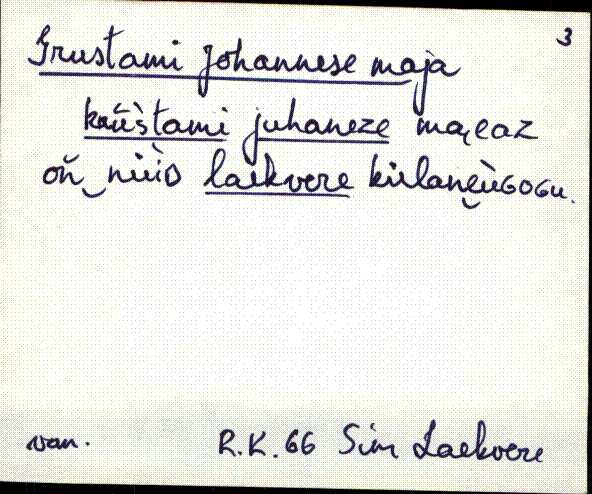 3
Grustami Johannese maja
krũ̀štami juhaneze maᴊᴇaz
oñ‿nǜid laekvere külanè̮ùɢoɢu.
van. R.K. 66 Sim Laekvere